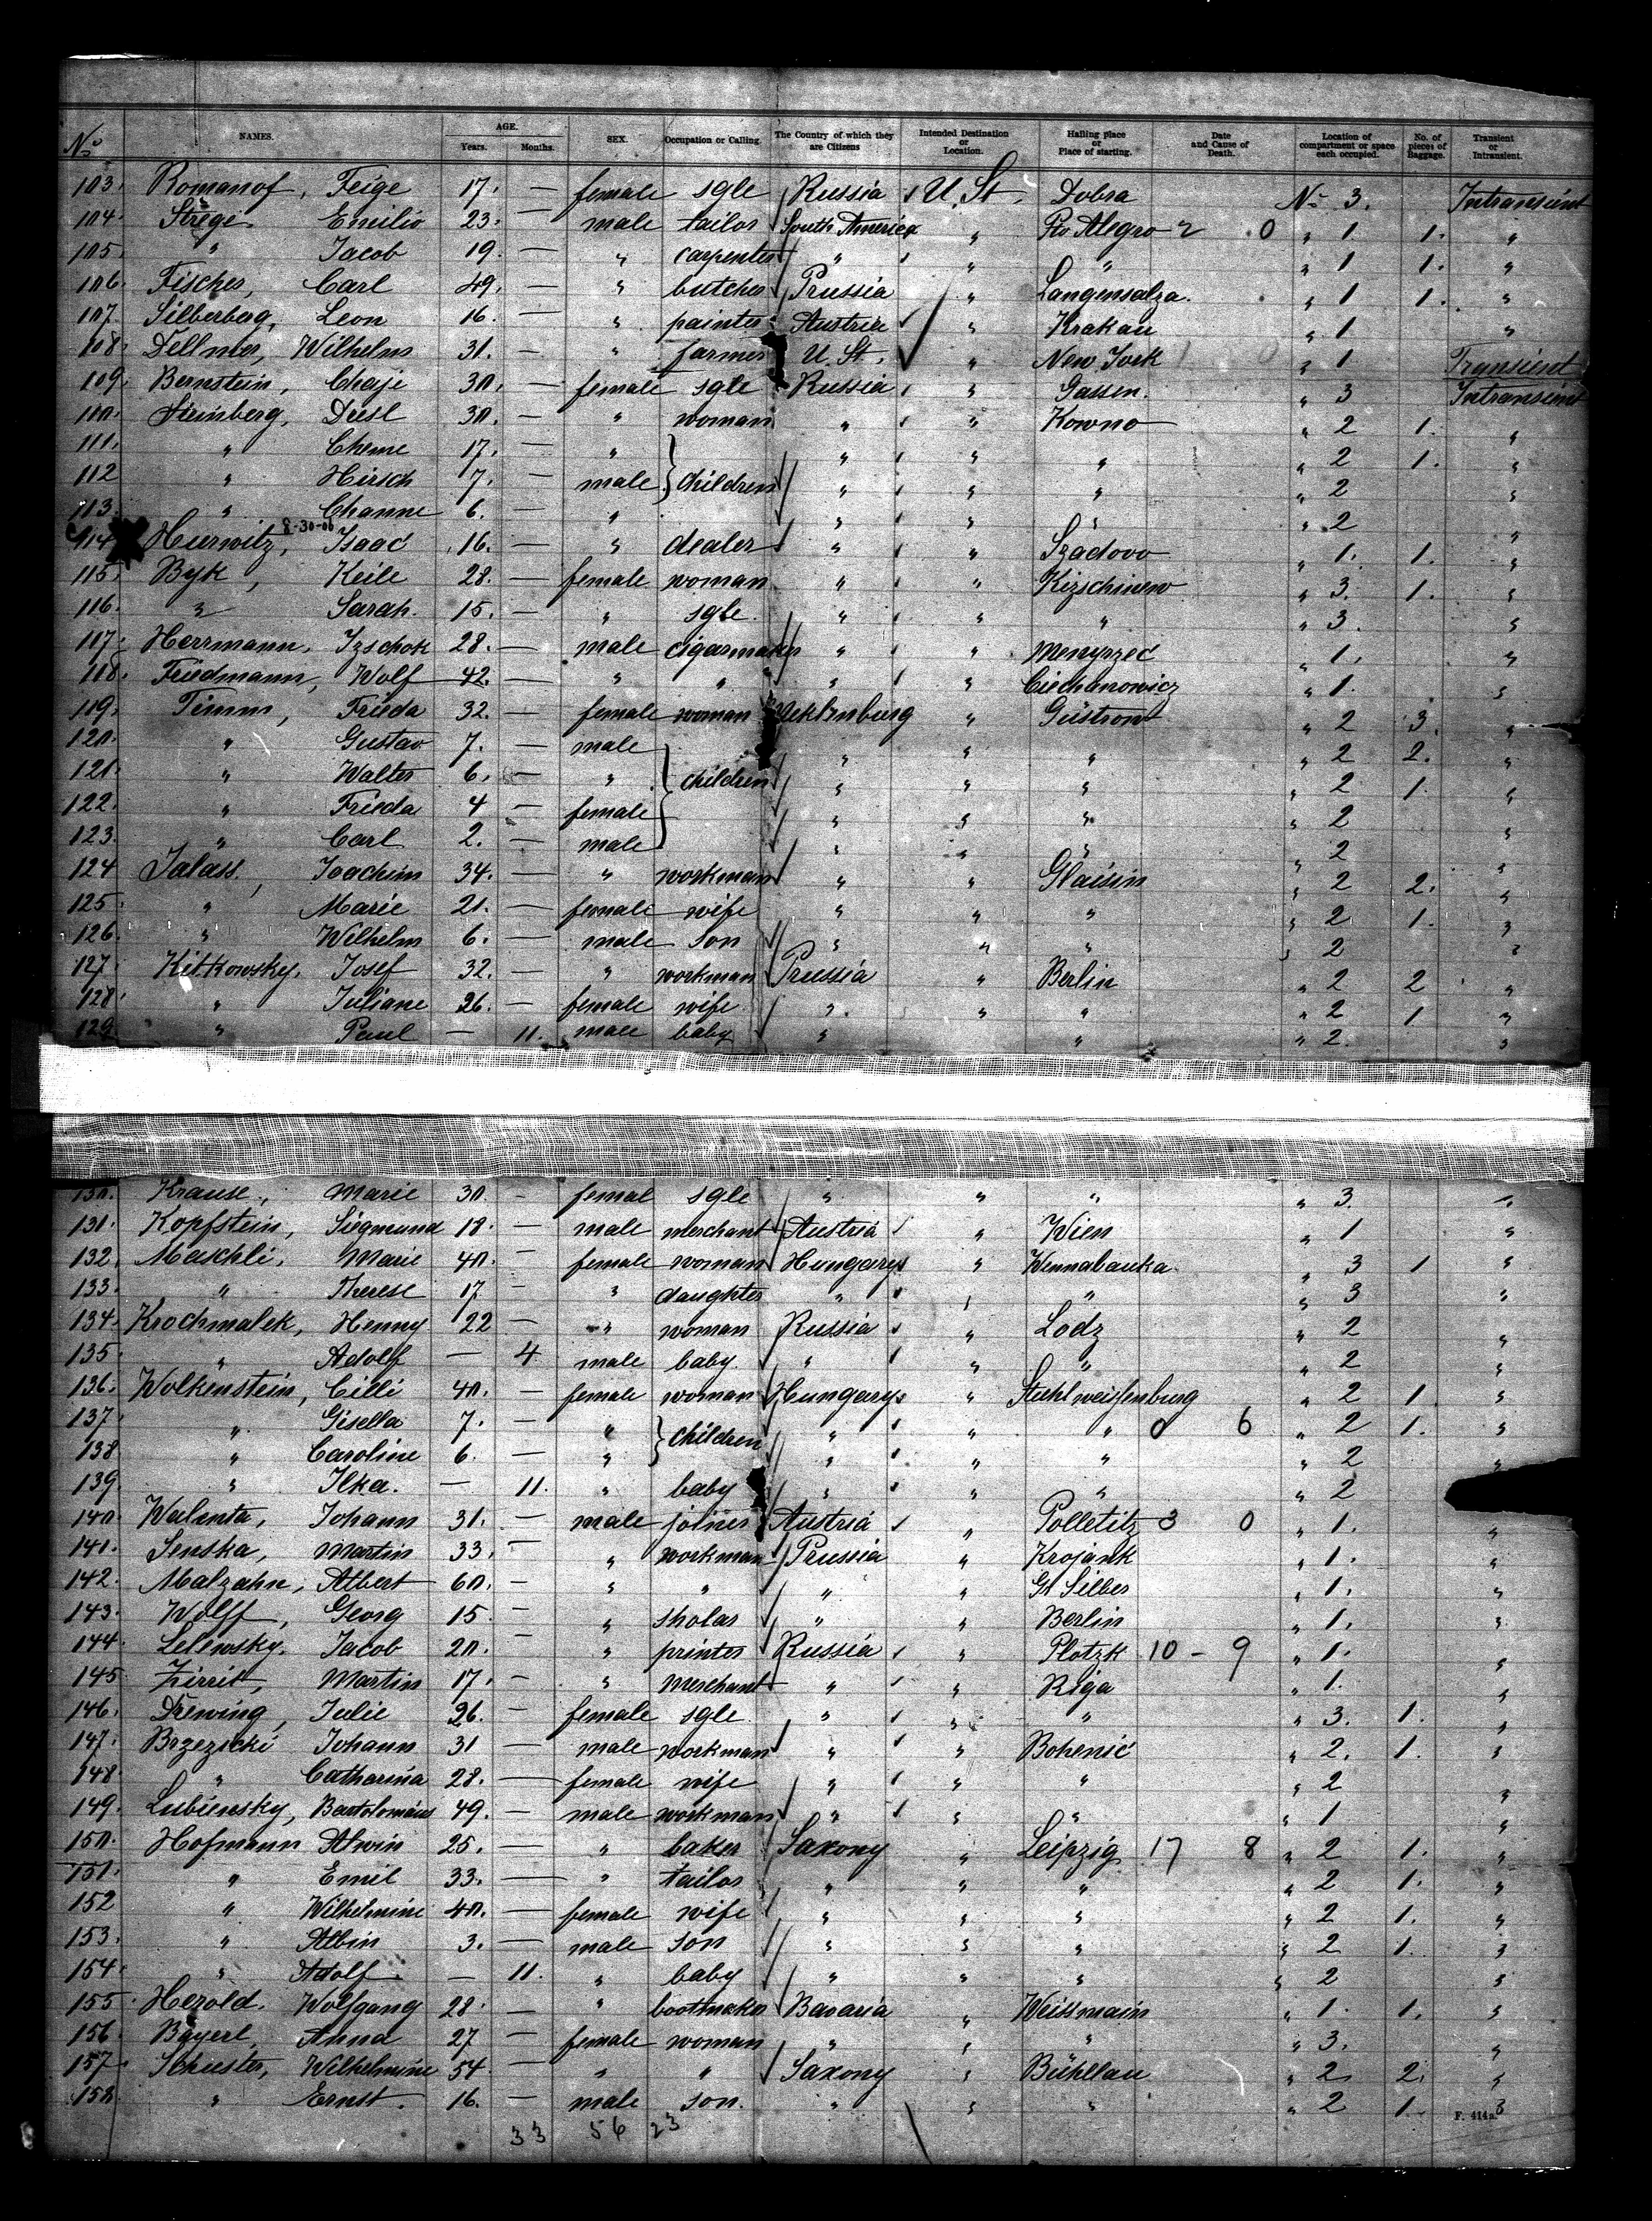 No. NAMES. AGE. Years. Months. SEX. Occupation or Calling. The Country of which they are Citizens Intended Destination or Location. Hailing place or Place of starting. Date and Cause of Death. Location of compartment or space each occupied. No. of pieces of Baggage. Transient or Intransient.
103. Romanof, Feige 17. — female sgle Russia U. St. Dobra No 3. Intransient
104. Stregi Emilio 23. — male tailor South America " Pto Alegro 2 0 " 1 1. "
105. " Jacob 19. — " carpenter " " " " 1 1. "
106. Fischer, Carl 49. — " butcher Prussia " Langensalza. " 1 1. "
107. Silberberg, Leon 16. — " painter Austria " Krakau " 1 "
108. Dellmer, Wilhelm 31. — " farmer U. St. " New York " 1 Transient
109. Bernstein, Chaje 30. — female sgle Russia " Gassen. " 3 Intransient
110. Steinberg, Dresl 30. — " woman " " Kowno " 2 1. "
111. " Cheme 17. — " " " " " 2 1. "
112 " Hirsch 7. — male children " " " " 2 "
113. " Channe 6. — " " " " " 2 "
8-30-06
114 Hurwitz, Isaac 16. — " dealer " " Szadovo " 1. 1. "
115. Byk, Keile 28. — female woman " " Kizschinew " 3. 1. "
116. " Sarah. 15. — " sgle. " " " " 3. "
117. Herrmann, Izschok 28. — male cigarmaker " " Menyrzec " 1. "
118. Friedmann, Wolf 42. — " " " " Ciechanowicz " 1. "
119. Timm, Frieda 32. — female woman Meklenburg " Güstrow " 2 3. "
120. " Gustav 7. — male " " " " 2 2. "
121. " Walter 6. — " children " " " " 2 1. "
122. " Frieda 4 — female " " " " 2 "
123. " Carl 2. — male " " " " 2 "
124 Jalass, Joachim 34. — " workman " " Glaisin " 2 2. "
125. " Marie 21. — female wife " " " " 2 1. "
126. " Wilhelm 6. — male son " " " " 2 "
127. Kitkowsky, Josef 32. — " workman Prussia " Berlin " 2 2 "
128. " Juliane 26. — female wife " " " " 2 1 "
129. " Paul — 11. male baby " " " 2. "
130. Krause, Marie 30 - femal sgle " " " " 3. "
131. Kopfstein, Siegmund 18. — male merchant Austria " Wien " 1 "
132. Maschli, Marie 40. — female woman Hungary " Wennabauka " 3 1 "
133. " Therese 17 — " daughter " " " " 3 "
134. Krochmalek, Henny 22 — " woman Russia " Lodz " 2 "
135. " Adolf — 4 male baby. " " " " 2 "
136. Wolkenstein, Cilli 40. — female woman Hungary " Stuhlweissenburg " 2 1 "
137. " Gisella 7. — " children " " " 0 6 " 2 1. "
138 " Caroline 6. — " " " " " 2 "
139. " Ilka. — 11. " baby " " " " 2
140. Walenta, Johann 31. — male joiner Austria " Polletitz 3 0 " 1. "
141. Senska, Martin 33. — " workman Prussia " Krojank " 1. "
142. Malzahn, Albert 60. — " " " " Gr Silber " 1. "
143. Wolff, Georg 15. — " sholar " " Berlin " 1. "
144. Lelewsky, Jacob 20. — " printer Russia " Plotzk 10 - 9 " 1. "
145. Zirrit, Martin 17. — " merchant " " Riga " 1. "
146. Drewing, Julie 26. — female sgle. " " " " 3. 1. "
147. Brzezicki Johann 31 — male workman " " Bohenic " 2. 1. "
148. " Catharina 28. — female wife " " " " 2 "
149. Lubiensky, Bartolomäus 49. — male workman " " " " 1 "
150. Hofmann Alwin 25. — " baker Saxony " Leipzig 17 8 " 2 1. "
151. " Emil 33. — " tailor " " " " 2 1. "
152 " Wilhelmine 40. — female wife " " " " 2 1. "
153. " Albin 3. — male son " " " " 2 1. "
154. " Adolf — 11. " baby " " " " 2 "
155. Herold. Wolfgang 28. — " bootmaker Bavaria " Weissmain " 1. 1. "
156. Bayerl Anna 27 — female woman " " " " 3. "
157. Schuster, Wilhelmine 54. — " " Saxony " Bühllau " 2 2. "
158. " Ernst. 16. — male son. " " " " 2 1. "
33 56 23
F. 414a.